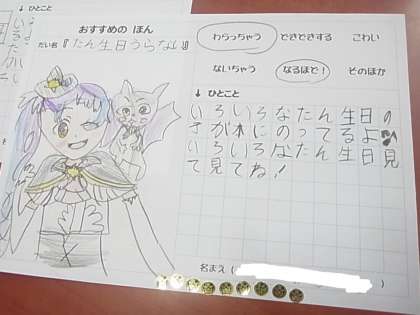 ↓ ひとこと
おすすめの ほん
だい名『たん生日うらない』
わらっちゃう どきどきする こわい
ないちゃう なるほど! そのほか
↓ ひとこと
いろいろなたん生日の
子が本にのってるよ♪
いろいろなたん生日見
て見てね!
名まえ( )